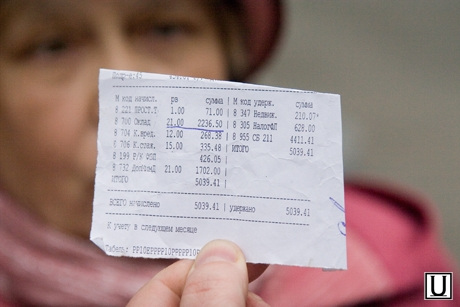 М код начисл. рв сумма | М код удерж. сумма
8 221 ПРОСТ.Т 1.00 71.00 | 8 347 Недвиж. 210.07
8 700 Оклад 21.00 2236.50 | 8 305 НалогФЛ 628.00
8 704 К.вред. 12.00 268.38 | 8 955 СБ 211 4411.41
8 706 К.стаж. 15.00 335.48 | ИТОГО 5039.41
8 199 Р/К ФЗП 426.05
8 732 21.00 1702.00
ИТОГО 5039.41
ВСЕГО начислено 5039.41 | удержано 5039.41
К учету в следующем месяце
Табель:
U